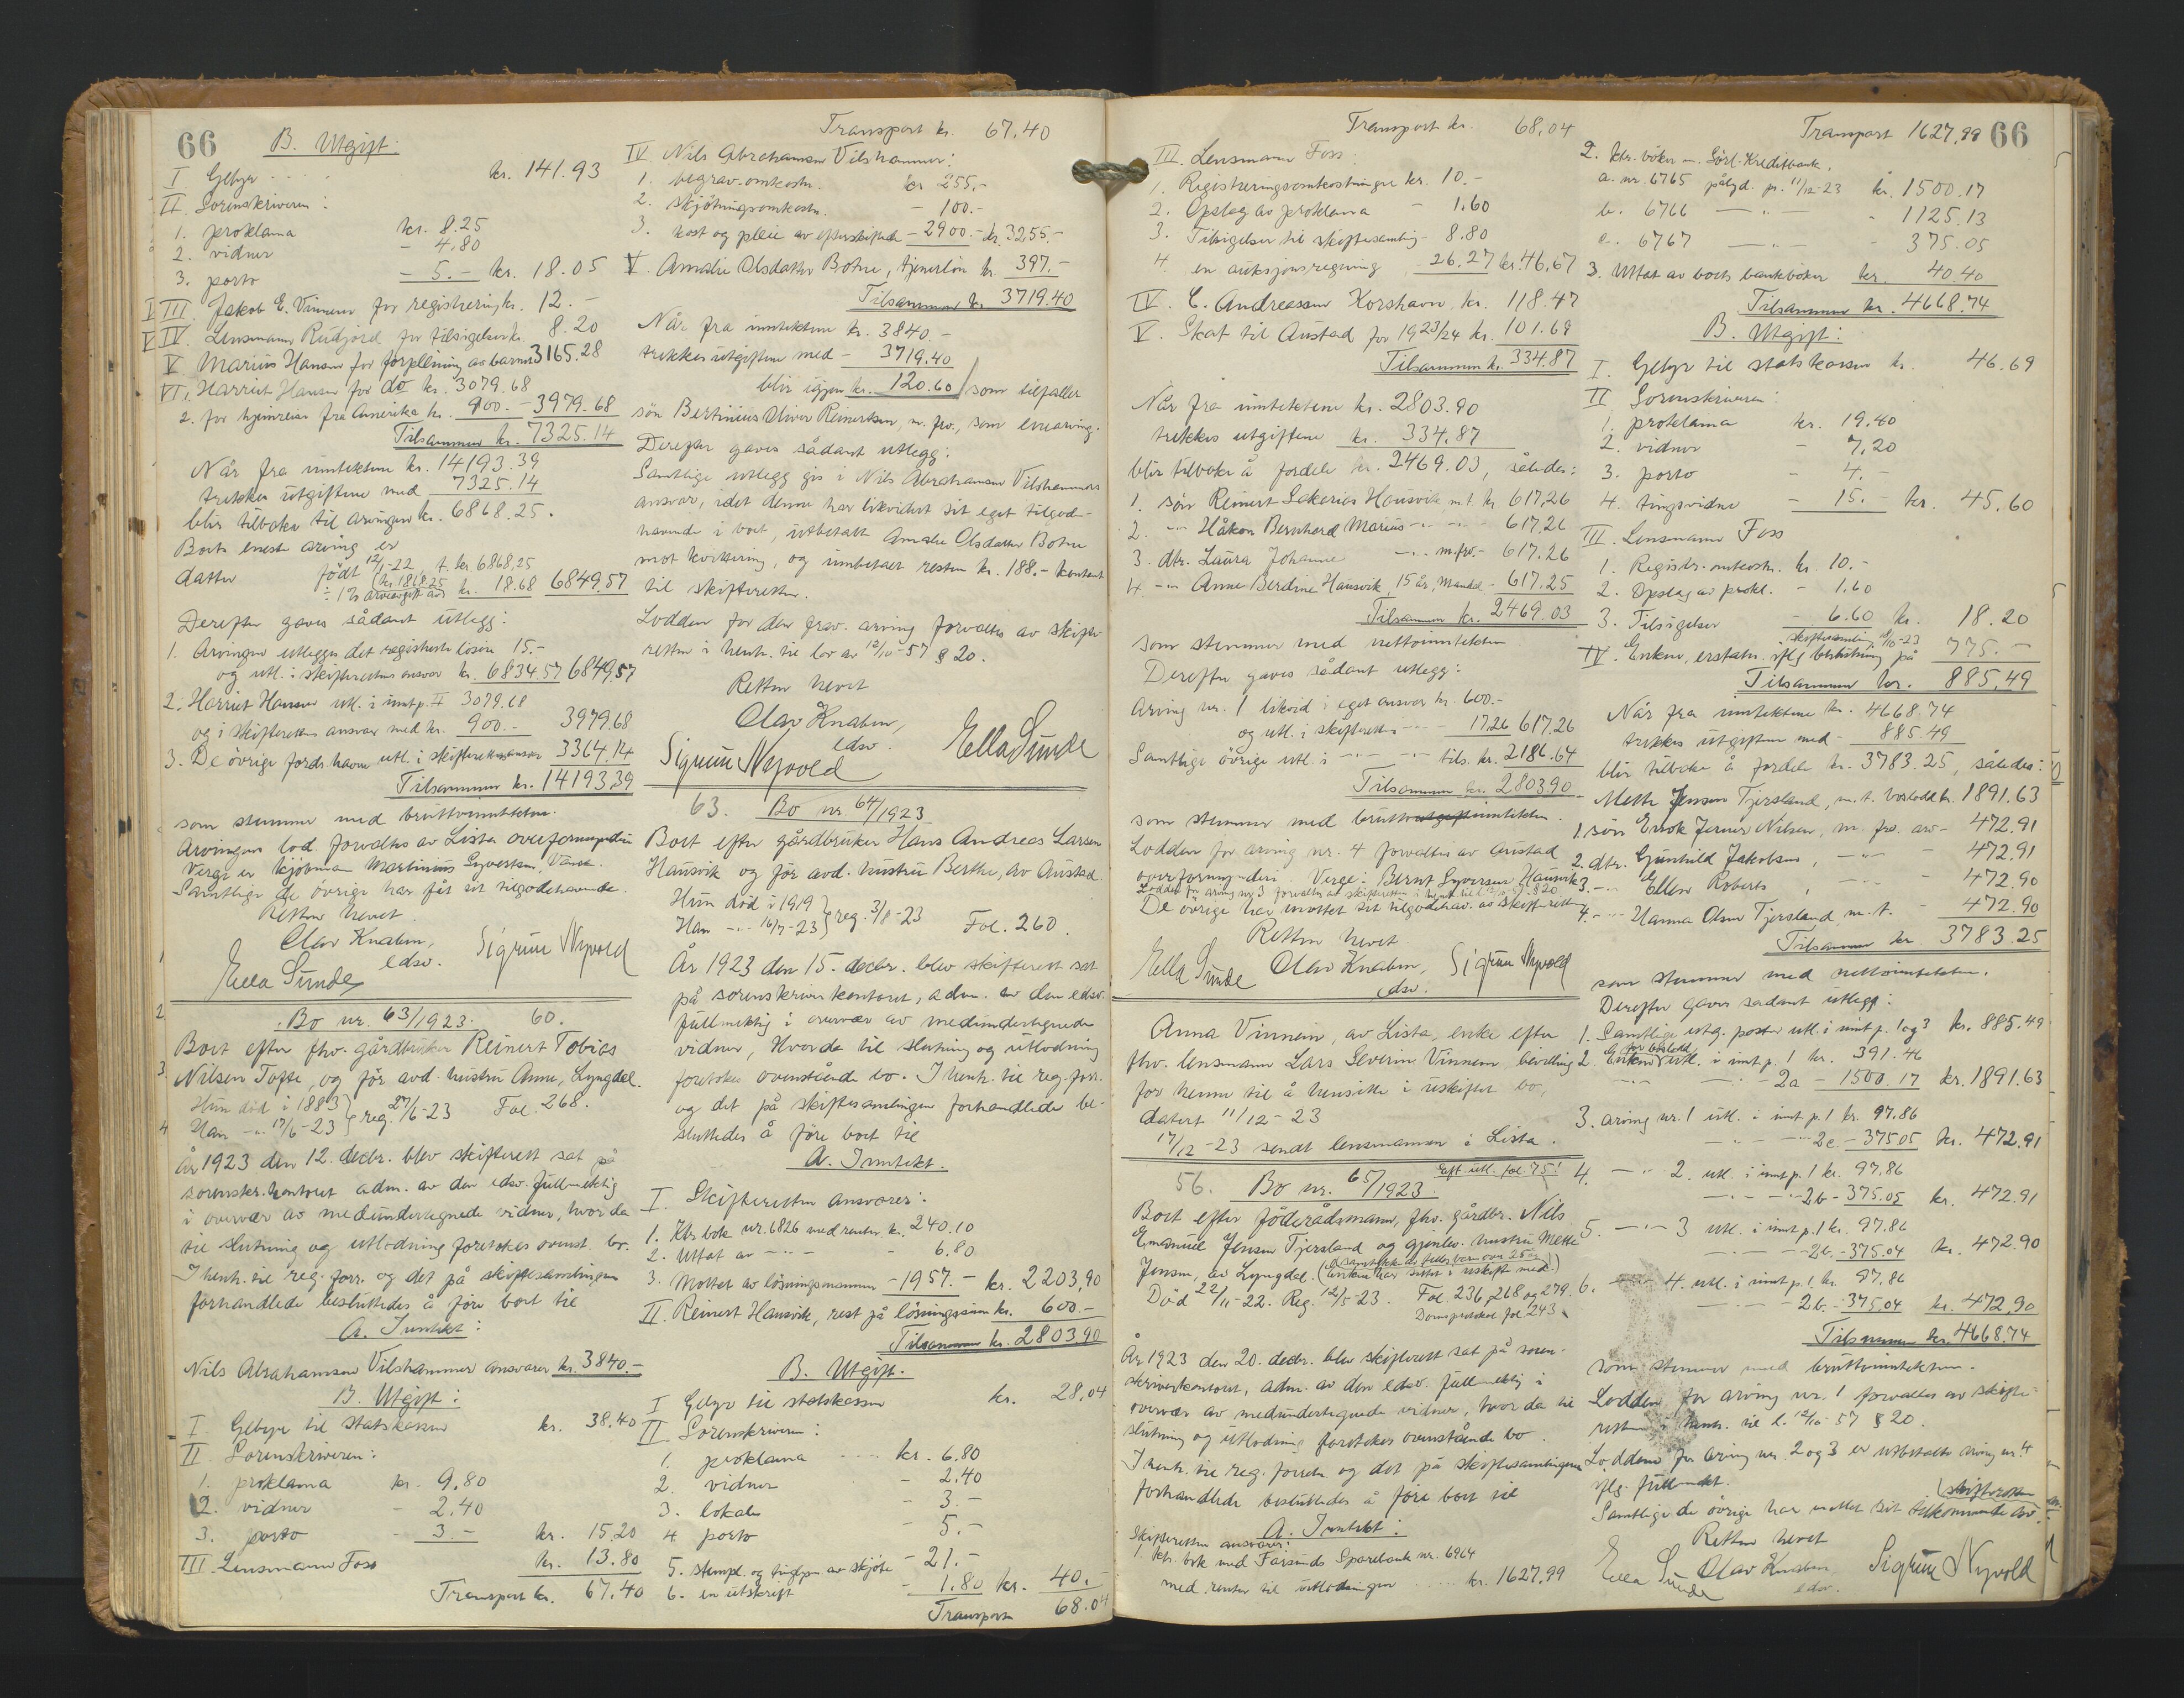 66
B. Utgift:
I Gebyr kr. 141.93
II Sorenskriveren:
1. proklama kr. 8.25
2. vidner - 4.80
3. porto - 5.- kr. 18.05
III Jakob E. Vinnem for registrering kr. 12.-
IV. Lensmann Rudjord for tilsigelser kr. 8.20
V Marius Hansen for forpleining av barnet 3165.28
VI. Harriet Hansen for do kr. 3079.68
2. for hjemreise fra Amerika kr. 900.- - 3979.68
Tilsammen kr. 7325.14
Når fra inntektene kr. 14193.39
trekkes utgiftene med 7325.14
blir tilbake til arvingen kr. 6868.25.
Boets eneste arving er
datter født 12/1-22, t. kr. 6868,25
÷ 1% arveavgift av kr. 1868.25 kr. 18.68 6849,57
Derefter gaves sådant utlegg:
1. Arvingen utlegges det registrerte løsøre 15.-
og utl. i skifterettens ansvar kr. 6834.57 6849,57
2. Harriet Hansen utl. i innt.p. II 3079.68
og i skifterettens ansvar med kr. 900.- 3979.68
3. De øvrige fordr.havere utl. i skifterettens ansvar 3364.14
Tilsammen kr. 14193.39
som stemmer med bruttoinntekten.
Arvingens lod forvaltes av Lista overformynderi
Verge er kjøbmann Martinius Syvertsen, Vanse.
Samtlige de øvrige har fåt sit tilgodehavende.
Retten hevet.
Olav Knaben,
edsv.
Sigrun Nypvold
Ella Sunde
Bo nr. 63/1923. 60.
Boet efter fhv. gårdbruker Reinert Tobias
Nilsen Tofte, og før avd. hustru Anne, Lyngdal.
Hun død i 1883
Han -"- 17/6-23 reg. 27/6-23 Fol. 268.
År 1923 den 12. decbr. blev skifterett sat på
sorenskr.kontoret adm. av den edsv. fullmektig
i overvær av medundertegnede vidner, hvor da
til slutning og utlodning foretokes ovenst. bo.
I henh. til reg. forr. og det på skiftesamlingen
forhandlede besluttedes å føre boet til
A. Inntekt:
Nils Abrahamsen Vilshammer ansvarer kr. 3840.-
B. Utgift:
I Gebyr til statskassen kr. 38.40
II Sorenskriveren:
1. proklama kr. 9.80
2. vidner - 2.40
3. porto - 3.- kr. 15.20
III Lensmann Foss kr. 13.80
Transport kr. 67.40
Transport kr. 67.40
IV Nils Abrahamsen Vilshammer:
1. begrav.omkostn. kr 255.-
2. skjøtningsomkostn. - 100.-
3. kost og pleie av efterskiftede - 2900.- kr. 3255.-
V. Amalie Olsdatter Botne, tjenerløn kr 397.-
Tilsammen kr. 3719.40
Når fra inntektene kr. 3840.-
trekkes utgiftene med - 3719.40
blir igjen kr. 120.60 som tilfaller
søn Bertinius Oliver Reinertsen, m. frv., som enearving.
Derefter gaves sådant utlegg:
Samtlige utlegg gis i Nils Abrahamsen Vilshammers
ansvar, idet denne har likvidert sit eget tilgode-
havende i boet, utbetalt Amalie Olsdatter Botne
mot kvittering, og innbetalt resten kr. 188.- kontant
til skifteretten.
Lodden for den frav. arving forvaltes av skifte
retten i henh. til lov av 12/10-57 § 20.
Retten hevet
Olav Knaben,
edsv.
Sigrun Nypvold
Ella Sunde
63. Bo nr. 64/1923
Boet efter gårdbruker Hans Andreas Larsen
Hausvik og før avd. hustru Berthe, av Austad.
Hun død i 1919
Han -"- 16/7-23 reg. 3/8-23 Fol. 260.
År 1923 den 15. decbr. blev skifterett sat
på sorenskriverkontoret, adm. av den edsv.
fullmektig i overvær av medundertegnede
vidner, hvorda til slutning og utlodning
foretokes ovenstående bo. I henh. til reg.forr.
og det på skiftesamlingen forhandlede be-
sluttedes å føre boet til
A. Inntekt.
I Skifteretten ansvarer:
1. Ktr. bok nr. 6826 med renter kr. 240.10
2. Uttat av -"- - 6.80
3. Mottat av løsningsmannen - 1957.- kr. 2203,90
II. Reinert Hausvik, rest på løsningssum kr. 600.-
Tilsammen kr. 2803,90
B. Utgift.
I Gebyr til statskassen kr. 28.04
II Sorenskriveren:
1. proklama kr. 6.80
2. vidner - 2.40
3. lokale - 3.-
4 porto - 5.-
5. stempl. og tinglysn. av skjøte - 21.-
6. en utskrift - 1.80 kr. 40.-
Transport 68.04
Transport kr. 68,04
III. Lensmann Foss:
1. Registreringsomkostninger kr. 10.-
2. Opslag av proklama - 1.60
3. Tilsigelser til skiftesamling - 8.80
4. en auksjonsregning - 26.27 kr. 46,67
IV. C. Andreassen Korshavn kr. 118.47
V. Skat til Austad for 1923/24 kr. 101.69
Tilsammen kr. 334.87
Når fra inntektene kr. 2803.90
trekkes utgiftene kr. 334,87
blir tilbake å fordele kr. 2469.03, således:
1. søn Reinert Sakarias Hausvik m.t. kr 617,26
2. -"- Håkon Bernhard Marius -"- -"- 617,26
3. dtr. Laura Johanne -"- m.frv.- 617.26
4 -"- Anne Berdine Hausvik, 15 år, Mandal - 617.25
Tilsammen kr. 2469.03
som stemmer med nettoinntekten
Derefter gaves sådant utlegg:
Arving nr. 1 likvid i eget ansvar kr. 600.-
og utl. i skifterettens -"- 17.26 617.26
Samtlige øvrige utl. i -"- -"- tils. kr. 2186.64
Tilsammen kr. 2803.90
som stemmer med bruttoutgiftinntekten.
Lodden for arving nr. 4 forvaltes av Austad
overformynderi. Verge: Bernt Syvertsen Hausvik
Lodden for arving nr. 3 forvaltes av skifteretten i henh. til l. 12/10-57 § 20
De øvrige har mottet sit tilgodehav. av skifteretten
Retten hevet
Ella Sunde Olav Knaben, Sigrun Nypvold
edsv.
Anna Vinnem, av Lista, enke efter
fhv. lensmann Lars Severin Vinnem bevilling
for henne til å hensitte i uskiftet bo,
datert 11/12-23
17/12-23 sendt lensmannen i Lista.
Eft. utl. fol 75!
56. Bo nr. 65/1923
Boet efter føderådsmann, fhv. gårdbr. Nils
Emanuel Jensen Tjersland og gjenlev. hustru Mette
Jensen, av Lyngdal. (Enken har sittet i uskift med
samtykke av felles barn over 25 år)
Død 22/11-22. Reg. 12/5-23. Fol. 236, 268 og 279.
Domsprotokol fol. 243
År 1923 den 20. decbr. blev skifterett sat på soren-
skriverkontoret, adm. av den edsv. fullmektig i
overvær av medundertegnede vidner, hvor da til
slutning og utlodning foretokes ovenstående bo.
I henh. til reg. forretn. og det på skiftesamlingen
forhandlede besluttedes å føre boet til
A. Inntekt:
Skifteretten ansvarer:
1. ktr. bok med Farsunds Sparebank nr. 6964
med renter til utlodningen kr. 1627,99
Transport 1627,99 66
2. ktr. bøker m. Sørl. Kreditbank.
a. nr. 6765 pålyd. pr. 11/12-23 kr. 1500.17
b. 6766 -"- - 1125.13
c. 6767 -"- - 375.05
3. Uttat av boets bankbøker kr. 40.40
Tilsammen kr. 4668.74
B. Utgift:
I. Gebyr til statskassen kr. 46.69
II Sorenskriveren:
1. proklama kr. 19.40
2. vidner - 7,20
3. porto - 4.-
4. tingsvidne - 15.- kr. 45.60
III. Lensmann Foss
1. Registr. omkostn. kr. 10.-
2. Opslag av prokl. - 1.60
3. Tilsigelser - 6.60 kr. 18.20
IV. Enken, erstatn. iflg. beslutning på
skiftesamling 775.-
Tilsammen kr. 885,49
Når fra inntektene kr. 4668.74
trekkes utgiftene med - 885.49
blir tilbake å fordele kr. 3783.25, således:
Mette Jensen Tjersland, m.t. boslodd kr. 1891.63
1. søn Enok Jerner Nilsen, m. frv. arv - 472.91
2. dtr. Gunhild Jakobsen, -"- - 472.91
3. -"- Ellen Roberts, -"- - 472.90
4. -"- Hanna Olsen Tjersland m.t. - 472.90
Tilsammen kr 3783.25
som stemmer med nettoinntekten.
Derefter gaves sådant utlegg:
1. Samtlige utg. poster utl. i innt p. 1 og 3 kr. 885.49
2. Enken for boslodd utl. i innt p. 1 kr. 391.46
-"- -"- 2a - 1500.17 kr. 1891.63
3. arving nr. 1 utl. i innt p. 1 kr. 97.86
-"- -"- 2c. - 375.05 kr. 472,91
4. -"- 2. utl. i innt p. 1 kr. 97.86
-"- -"- 2b - 375.05 kr. 472.91
5. -"- 3 utl. i innt p. 1 kr. 97.86
-"- -"- 2b. - 375.04 kr. 472.90
6. -"- 4. utl. i innt p. 1 kr. 97.86
-"- -"- 2b. - 375.04 kr. 472.90
Tilsammen kr. 4668.74
som stemmer med bruttoinntekten.
Lodden for arving nr. 1 forvaltes av skifte-
retten i henh. til l. 12/10-57 § 20.
Loddene for arving nr. 2 og 3 er utbetalte arving nr. 4
iflg. fullmakt.
Samtlige de øvrige har mottet sit tilkommende av
skifteretten
Retten hevet
Ella Sunde Olav Knaben, Sigrun Nypvold
edsv.